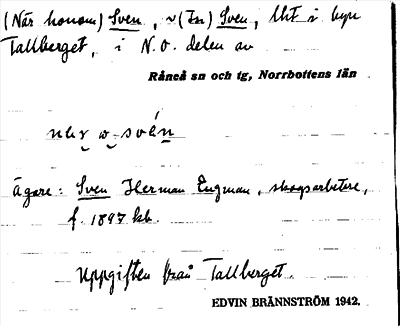 (När honom) Sven, ~ (In) Sven, lht i byn
Tallberget, i N.O. delen av
Råneå sn och tg, Norrbottens län
nɐr w-svén
Ägare: Sven Herman Engman, skogsarbetare,
f. 1897 hb.
Uppgiften från Tallberget.
EDVIN BRÄNNSTRÖM 1942.